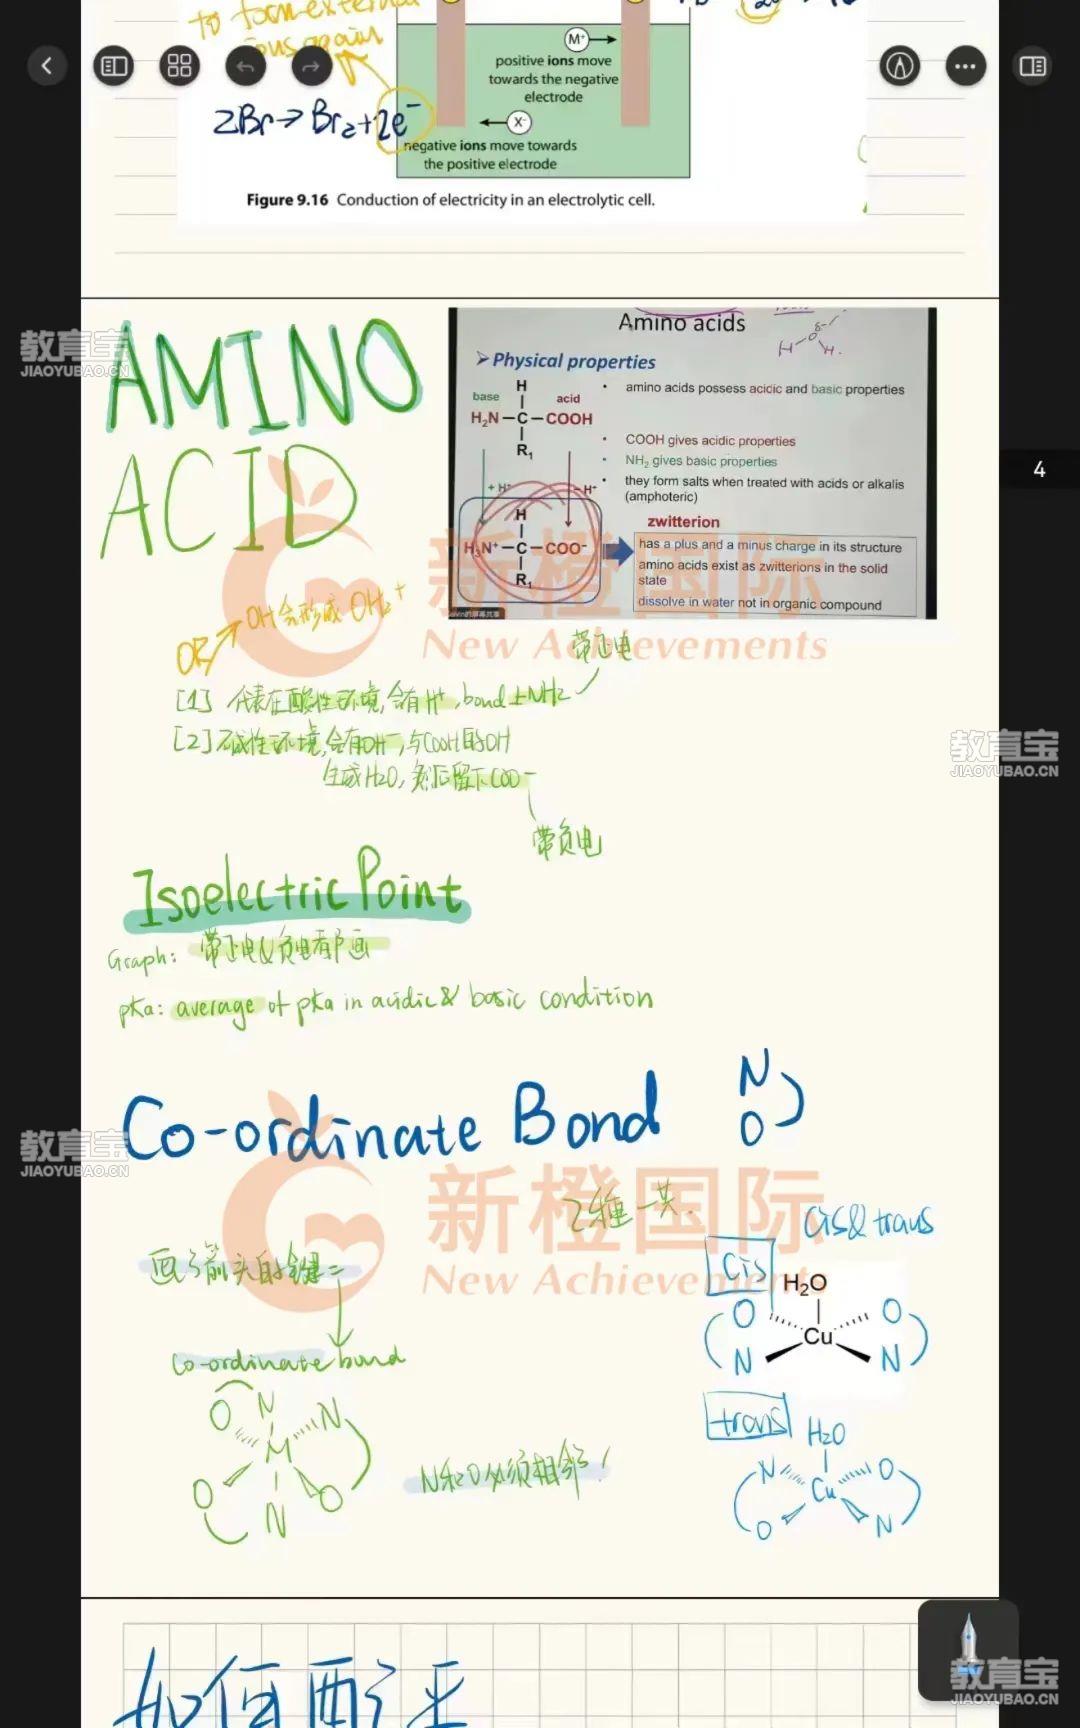 to form external
ions again
2Br→Br₂+2e⁻
M⁺
positive ions move
towards the negative
electrode
X⁻
negative ions move towards
the positive electrode
Figure 9.16 Conduction of electricity in an electrolytic cell.
AMINO
ACID
Amino acids
H
δ-
H
O
H.
➢Physical properties
base
acid
H₂N–C–COOH
R₁
• amino acids possess acidic and basic properties
• COOH gives acidic properties
• NH₂ gives basic properties
• they form salts when treated with acids or alkalis
(amphoteric)
+ H⁺
- H⁺
H
H₃N⁺–C–COO⁻
R₁
zwitterion
has a plus and a minus charge in its structure
amino acids exist as zwitterions in the solid
state
dissolve in water not in organic compound
4
OR→OH会形成OH₂⁺
带正电
[1] 代表在酸性环境,会有H⁺,bond上NH₂
[2]碱性环境,会有OH⁻,与COOH的OH
生成H2O,然后留下COO⁻
带负电
Isoelectric Point
Graph: 带正电&负电都画
pKa: average of pKa in acidic & basic condition
Co-ordinate Bond
N
O
2种一共.
画了箭头的键=
co-ordinate bond
O N N
M
O N O
N和O必须相邻!
cis&trans
cis
H₂O
O O
Cu
N N
trans
H2O
N O
Cu
O N
如何配平
新橙国际
New Achievements
新橙国际
New Achievements
教育宝
JIAOYUBAO.CN
教育宝
JIAOYUBAO.CN
教育宝
JIAOYUBAO.CN
教育宝
JIAOYUBAO.CN